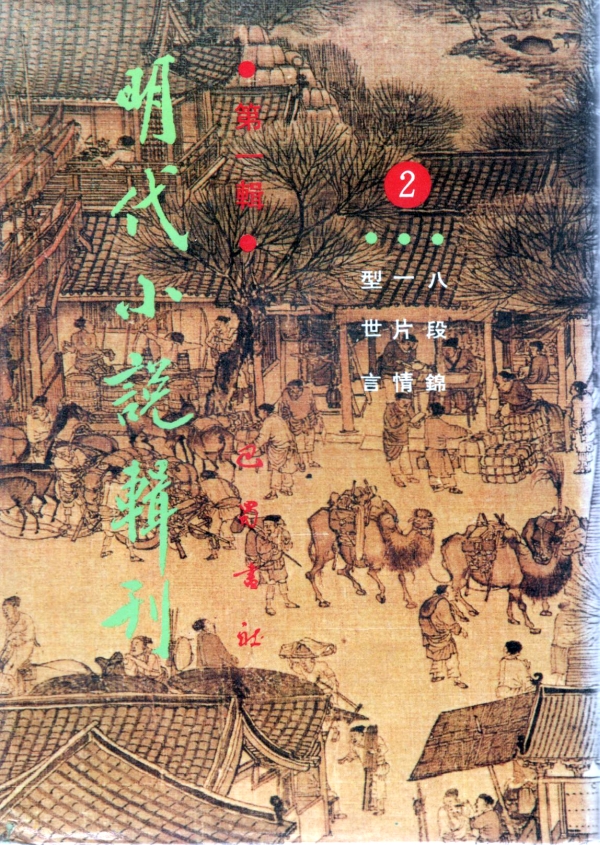 明代小説輯刊
●第一輯●
巴蜀書社
2
●●●
八段錦
一片情
型世言